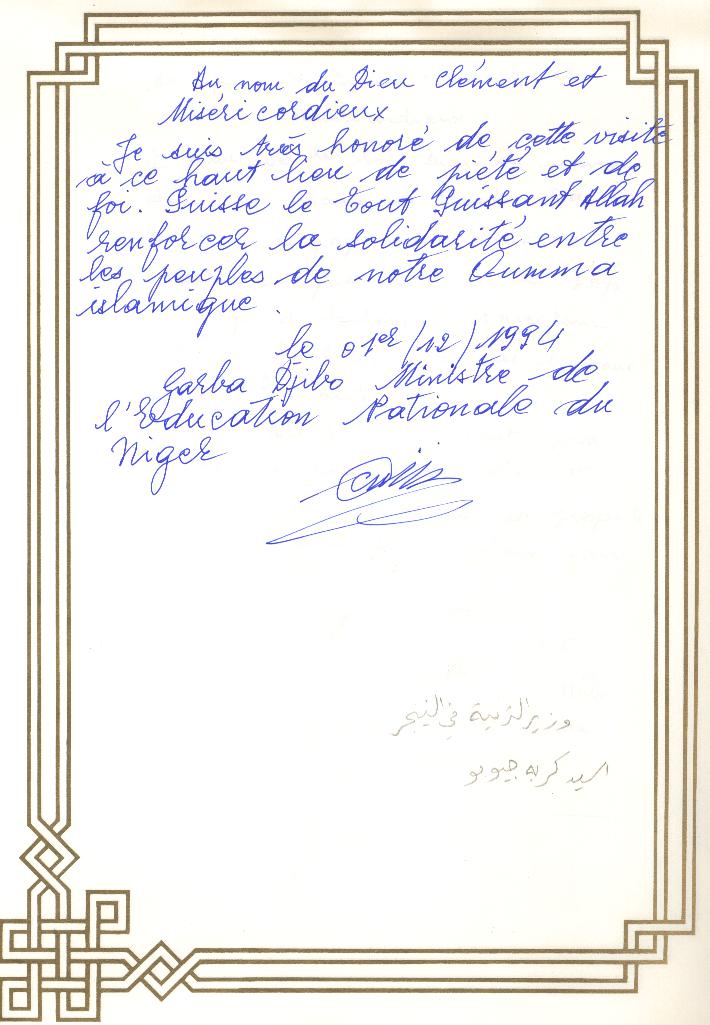 Au nom du Dieu Clément et
Miséricordieux
Je suis très honoré de cette visite
à ce haut lieu de piété et de
foi. Puisse le Tout Puissant Allah
renforcer la solidarité entre
les peuples de notre Oumma
islamique.
le 01er/12/1994
Garba Djibo Ministre de
l'Education Nationale du
Niger
وزير التربية في النيجر
السيد كربه جيوبو